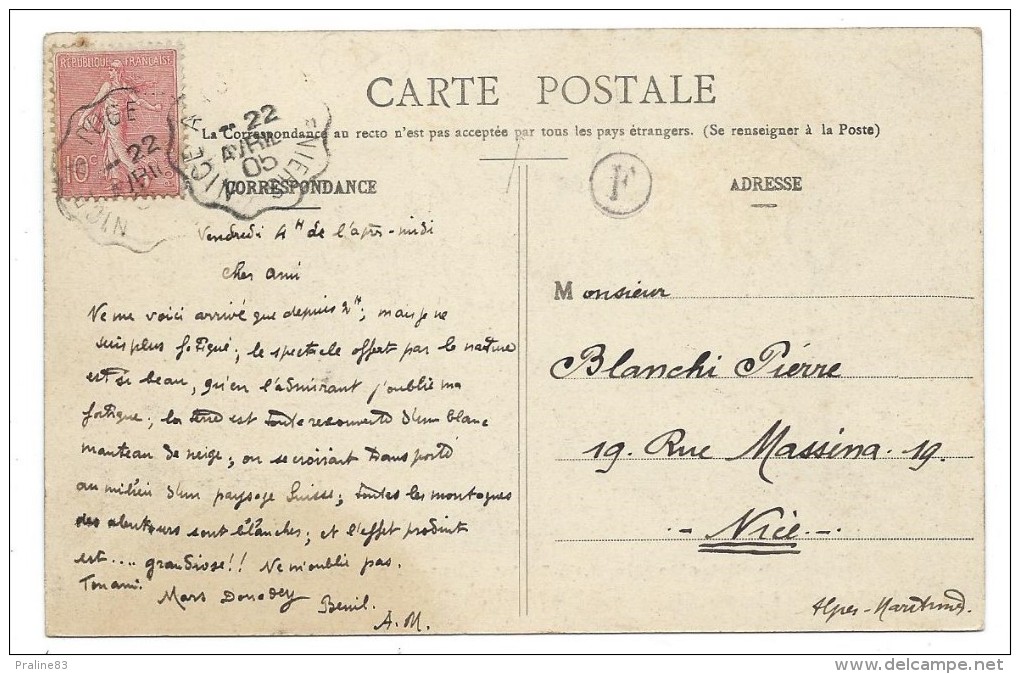 RÉPUBLIQUE FRANÇAISE
10c
NICE A
22
AVRIL
05
CARTE POSTALE
La Correspondance au recto n'est pas acceptée par tous les pays étrangers. (Se renseigner à la Poste)
CORRESPONDANCE
F
ADRESSE
Vendredi 4H de l'après-midi
Cher ami
Me voici arrivé que depuis 2H; mais je ne
suis plus fatigué; le spectacle offert par la nature
est si beau, qu'en l'admirant j'oublie ma
fatigue; la terre est toute recouverte d'un blanc
manteau de neige; on se croirait transporté
au milieu d'un paysage Suisse; toutes les montagnes
des alentours sont blanches; et l'effet produit
est.... grandiose!! Ne m'oublie pas.
Ton ami
Beuil.
A.M.
Monsieur
Blanchi Pierre
19. Rue Masséna. 19.
- Nice -.
Alpes-Maritimes
Praline83
delcampe.net